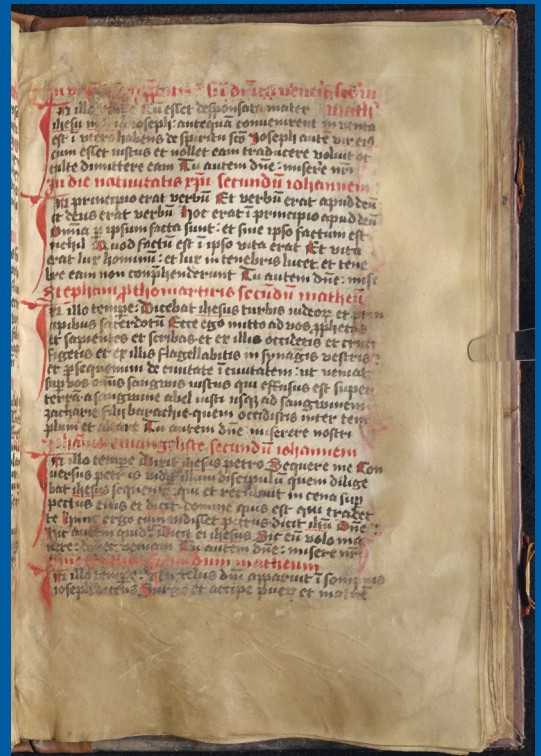 In illo esset desponsata mater math
ihesu ioseph: antequā conuenirent in uenta
est ī utero habens de spiritu scō Joseph aute vir ei9
cum esset iustus et nollet eam traducere voluit oc
culte dimittere eam Tu autem dn̄e: misere nr̄i
In die natiuitatis xp̄i secundū iohannem
In principio erat verbū Et verbū erat apud deū
et deus erat verbū Hoc erat ī principio apud deū
Omīa ꝑ ipsum facta sunt: et sine ipso factum est
nichil Quod factū est ī ipso vita erat Et vita
erat lux hominū: et lux in tenebris lucet et tene
bre eam non cōprehenderunt Tu autem dn̄e: mise
Stephani ꝓthomartiris secundū matheū
In illo tempꝛe: Dicebat ihesus turbis iudeoꝝ et prin
cipibus sacerdotū Ecce ego mitto ad vos ꝓphetas
et sapientes et scribas et ex illis occidetis et cruci
figetis et ex illis flagellabitis in synagogis vestris
et ꝑsequemini de ciuitate ī ciuitatem: ut veniat
sup vos om̄is sanguis iustus qui effusus est super
terrā a sanguine abel iusti usqꝫ ad sanguinem
zacharie filii barachie quem occidistis inter tem
plum et altare Tu autem dn̄e miserere nostri
Iohānis ewangeliste secundū iohannem
In illo tempꝛe Dixit ihesus petro Sequere me Con
versus petrus vidit illum discipulū quem dilige
bat ihesus sequentē qui et recubuit in cena sup
pectus eius et dixit domine quis est qui tradet
te Hunc ergo cum vidisset petrus dicit ihū Dn̄e
hic autem quid Dicit ei ihesus Sic eū volo ma
nere donec veniam Tu autem dn̄e: misere nr̄i
secundum matheum
In illo tempꝛe: Angelus dn̄i apparuit ī sompnis
ioseph dicens Surge et accipe pueꝝ et matrē